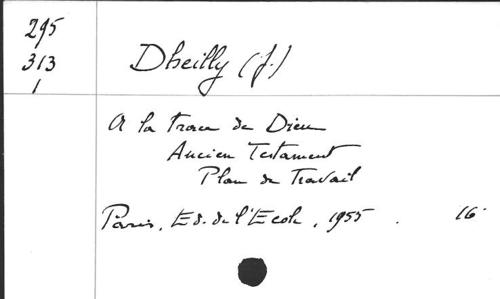 295
313
1
Dheilly (J.)
A la trace de Dieu
Ancien Testament
Plan de Travail
Paris, Ed. de l'Ecole, 1955. 16